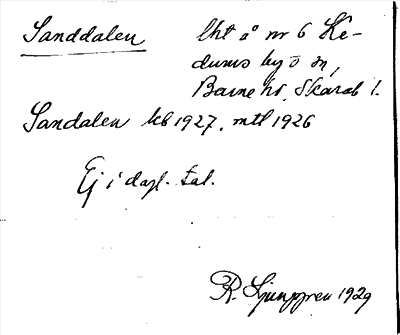 Sanddalen lht å nr 6 Ke-
dums by o sn,
Barne hd, Skarab l.
Sandalen kb 1927, mtl 1926
Ej i dagl. tal.
R. Ljunggren 1929